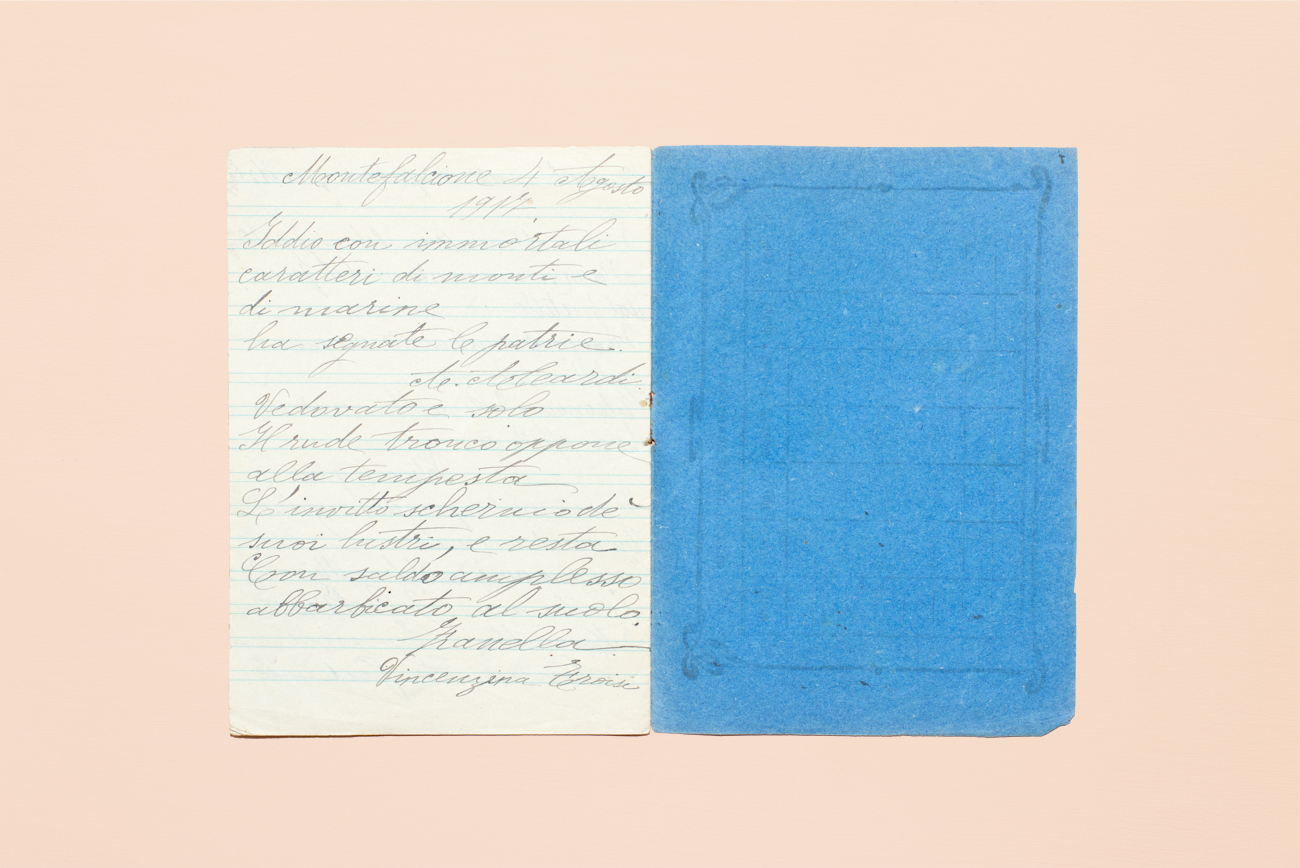 Montefalcione 4 Agosto
1917
Iddio con immortali
caratteri di monti e
di marine
ha segnate le patrie.
A. Aleardi.
Vedovato e solo
Il rude tronco oppone
alla tempesta
L'invitto schernio de'
suoi lustri, e resta
Con saldo amplesso
abbarbicato al suolo.
Zanella
Vincenzina Eroisi